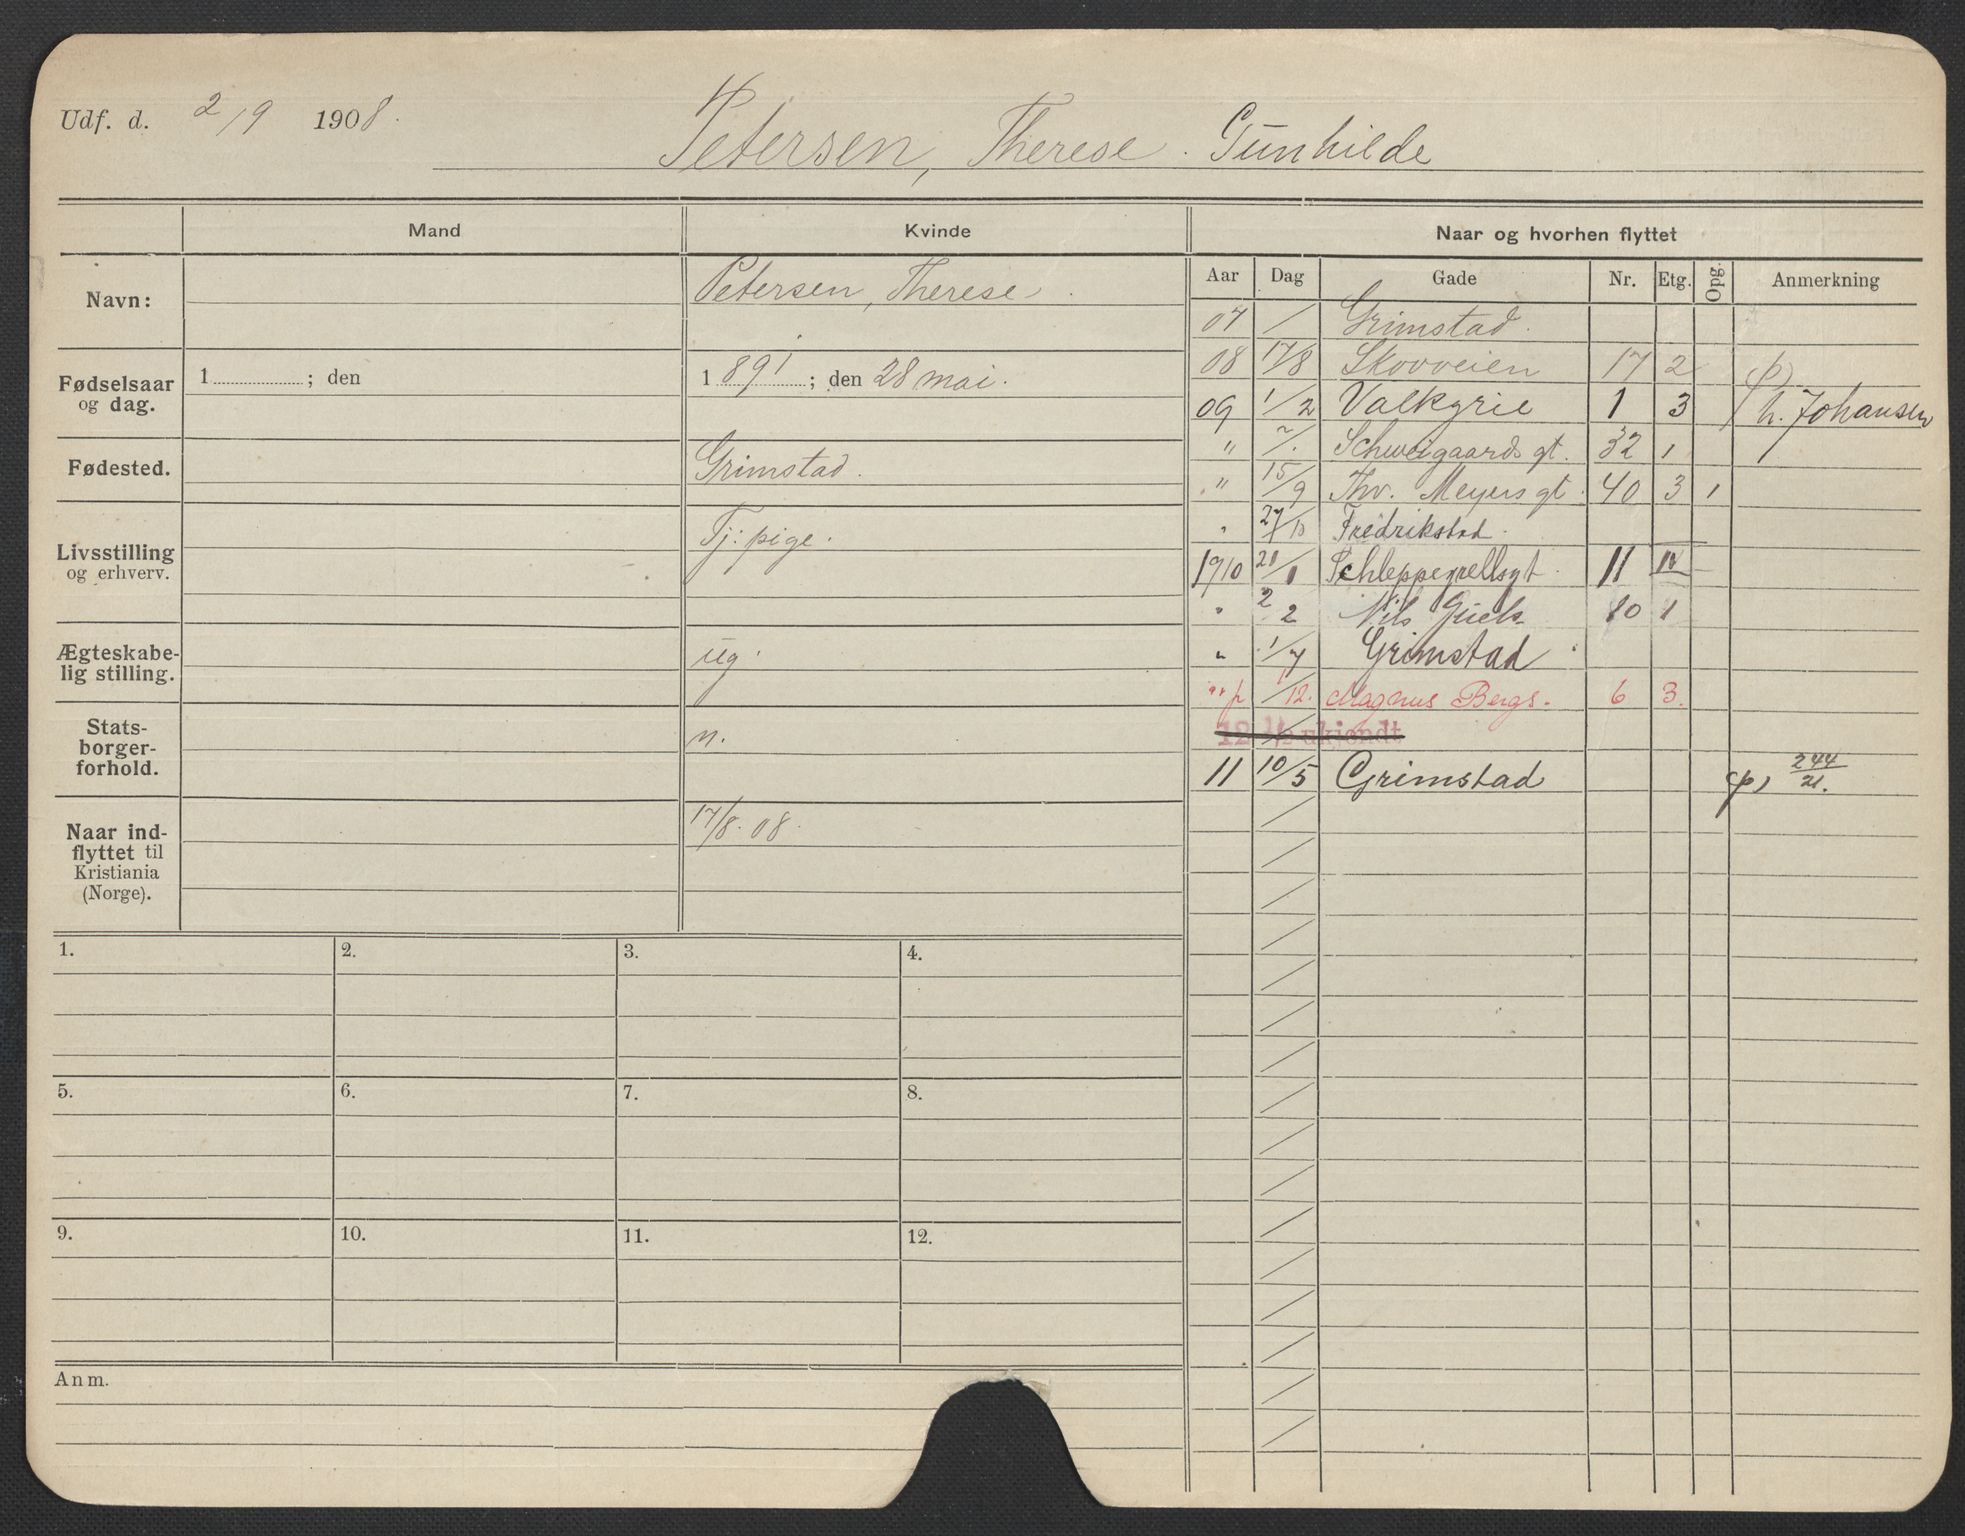 Udf. d. 2/9 1908.
Petersen, Therese. Gunhilde
Mand
Kvinde
Naar og hvorhen flyttet
Navn:
Petersen, Therese.
Fødselsaar og dag.
1 ; den
1891; den 28 mai.
Fødested.
Grimstad.
Livsstilling og erhverv.
Tj: pige.
Ægteskabelig stilling.
ug.
Statsborgerforhold.
n.
Naar indflyttet til Kristiania (Norge).
17/8. 08.
Aar Dag Gade Nr. Etg. Opg. Anmerkning
07 / Grimstad.
08 17/8 Skovveien 17 2 p)
09 1/2 Valkyrie 1 3 h. Johansen
" Schweigaards gt. 32 1
" 15/9 Thv. Meyers gt. 40 3 1
" 27/10 Fredrikstad.
1910 Schleppegrellsgt. 11 IV
" 2/2 Nils 10 1
" 1/7 Grimstad
" p /12. Magnus Bergs. 6 3.
12 ukjendt
11 10/5 Grimstad p) 244/21.
1. 2. 3. 4.
5. 6. 7. 8.
9. 10. 11. 12.
Anm.